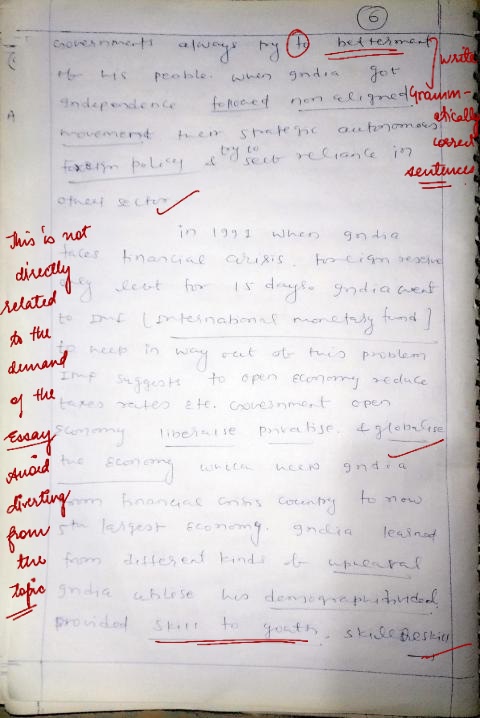 6
Governments always try to betterment
of his people. when India got
Independence followed non aligned
movement their strategic autonomous
foreign policy & try to self reliance in
others sector
write
Gramm-
atically
correct
sentences
in 1991 when India
faces financial crisis. foreign reserve
only left for 15 days. India went
to Imf [International monetary fund]
to help in way out of this problem
Imf suggests to open economy reduce
taxes rates etc. Government open
economy liberalise privatise. & globalise
the economy which helps India
from financial crisis country to now
5th largest economy. India learned
from different kinds of upheaval
India utilese his demographic dividend
provided skill to youth. skill Reskill
This is not
directly
related
to the
demand
of the
Essay
Avoid
diverting
from
the
topic